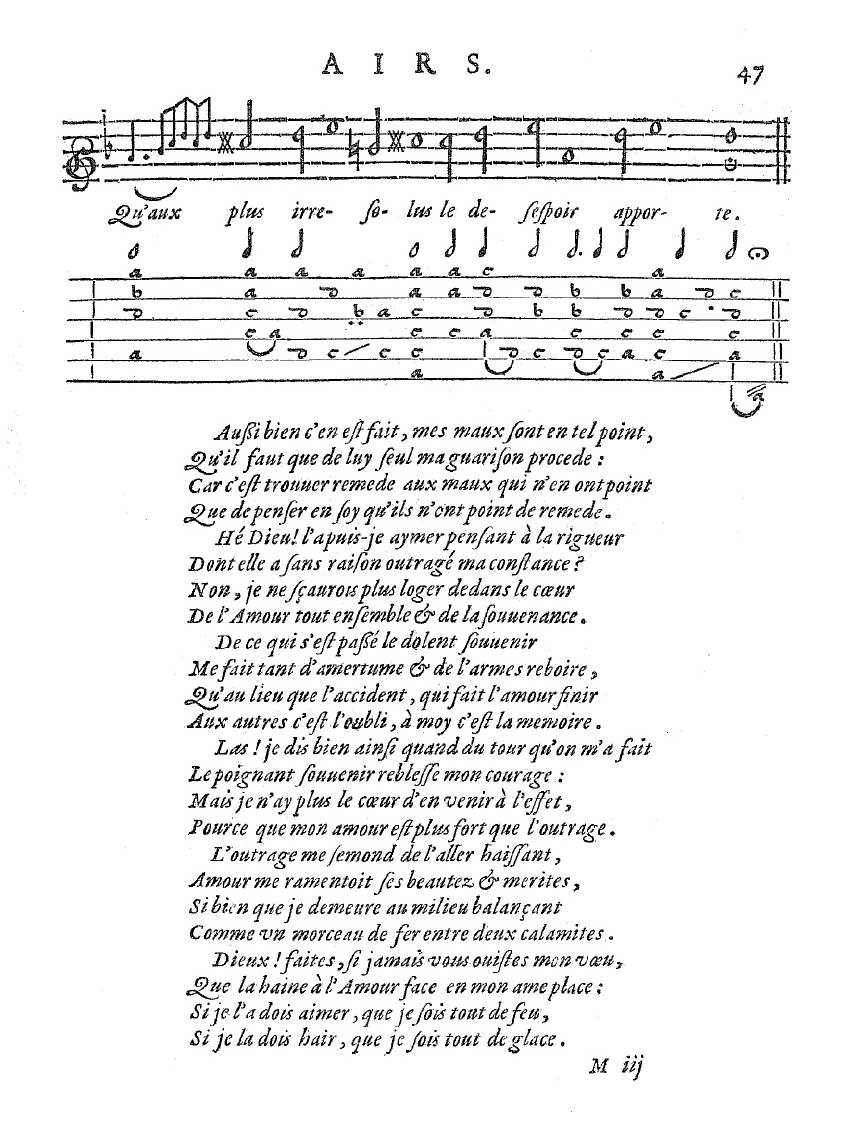 AIRS.
47
Qu'aux plus irre- ſo- lus le de- ſeſpoir appor- te.
Außi bien c'en eſt fait, mes maux ſont en tel point,
Qu'il faut que de luy ſeul ma guariſon procede :
Car c'eſt trouuer remede aux maux qui n'en ont point
Que de penſer en ſoy qu'ils n'ont point de remede.
Hé Dieu! l'apuis-je aymer penſant à la rigueur
Dont elle a ſans raiſon outragé ma conſtance ?
Non, je ne ſçaurois plus loger dedans le cœur
De l'Amour tout enſemble & de la ſouuenance.
De ce qui s'eſt paßé le dolent ſouuenir
Me fait tant d'amertume & de l'armes reboire,
Qu'au lieu que l'accident, qui fait l'amour finir
Aux autres c'eſt l'oubli, à moy c'eſt la memoire.
Las ! je dis bien ainſi quand du tour qu'on m'a fait
Le poignant ſouuenir rebleſſe mon courage :
Mais je n'ay plus le cœur d'en venir à l'effet,
Pource que mon amour eſt plus fort que l'outrage.
L'outrage me ſemond de l'aller haiſſant,
Amour me ramentoit ſes beautez & merites,
Si bien que je demeure au milieu balançant
Comme vn morceau de fer entre deux calamites.
Dieux ! faites, ſi jamais vous ouiſtes mon vœu,
Que la haine à l'Amour face en mon ame place :
Si je l'a dois aimer, que je ſois tout de feu,
Si je la dois hair, que je ſois tout de glace.
M iij